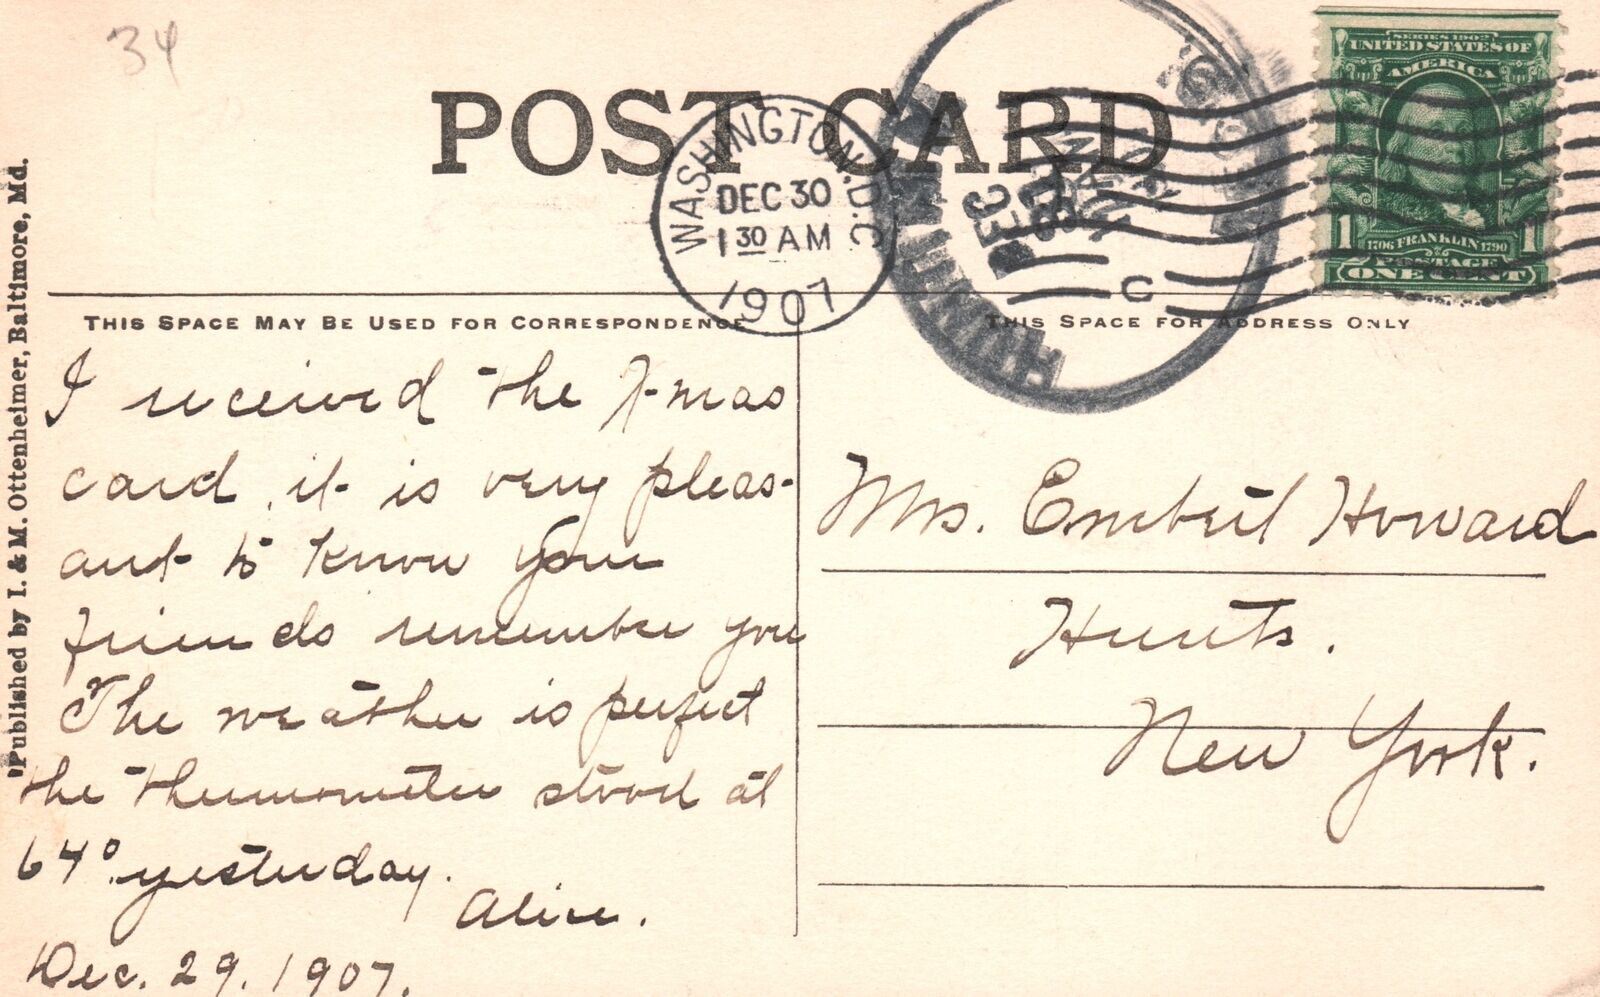 34
POST CARD
WASHINGTON, D.C.
DEC 30
1 30 AM
1907
DEC
C
SERIES 1902
UNITED STATES OF
AMERICA
1 1706 FRANKLIN 1790 1
POSTAGE
ONE CENT
Published by I. & M. Ottenheimer, Baltimore, Md.
THIS SPACE MAY BE USED FOR CORRESPONDENCE
I received the X-mas
card, it is very pleas-
ant to know your
friends remember you
The weather is perfect
the thermometer stood at
64° yesterday.
Alice.
Dec. 29. 1907.
THIS SPACE FOR ADDRESS ONLY
Mrs. Howard
Hunts.
New York.